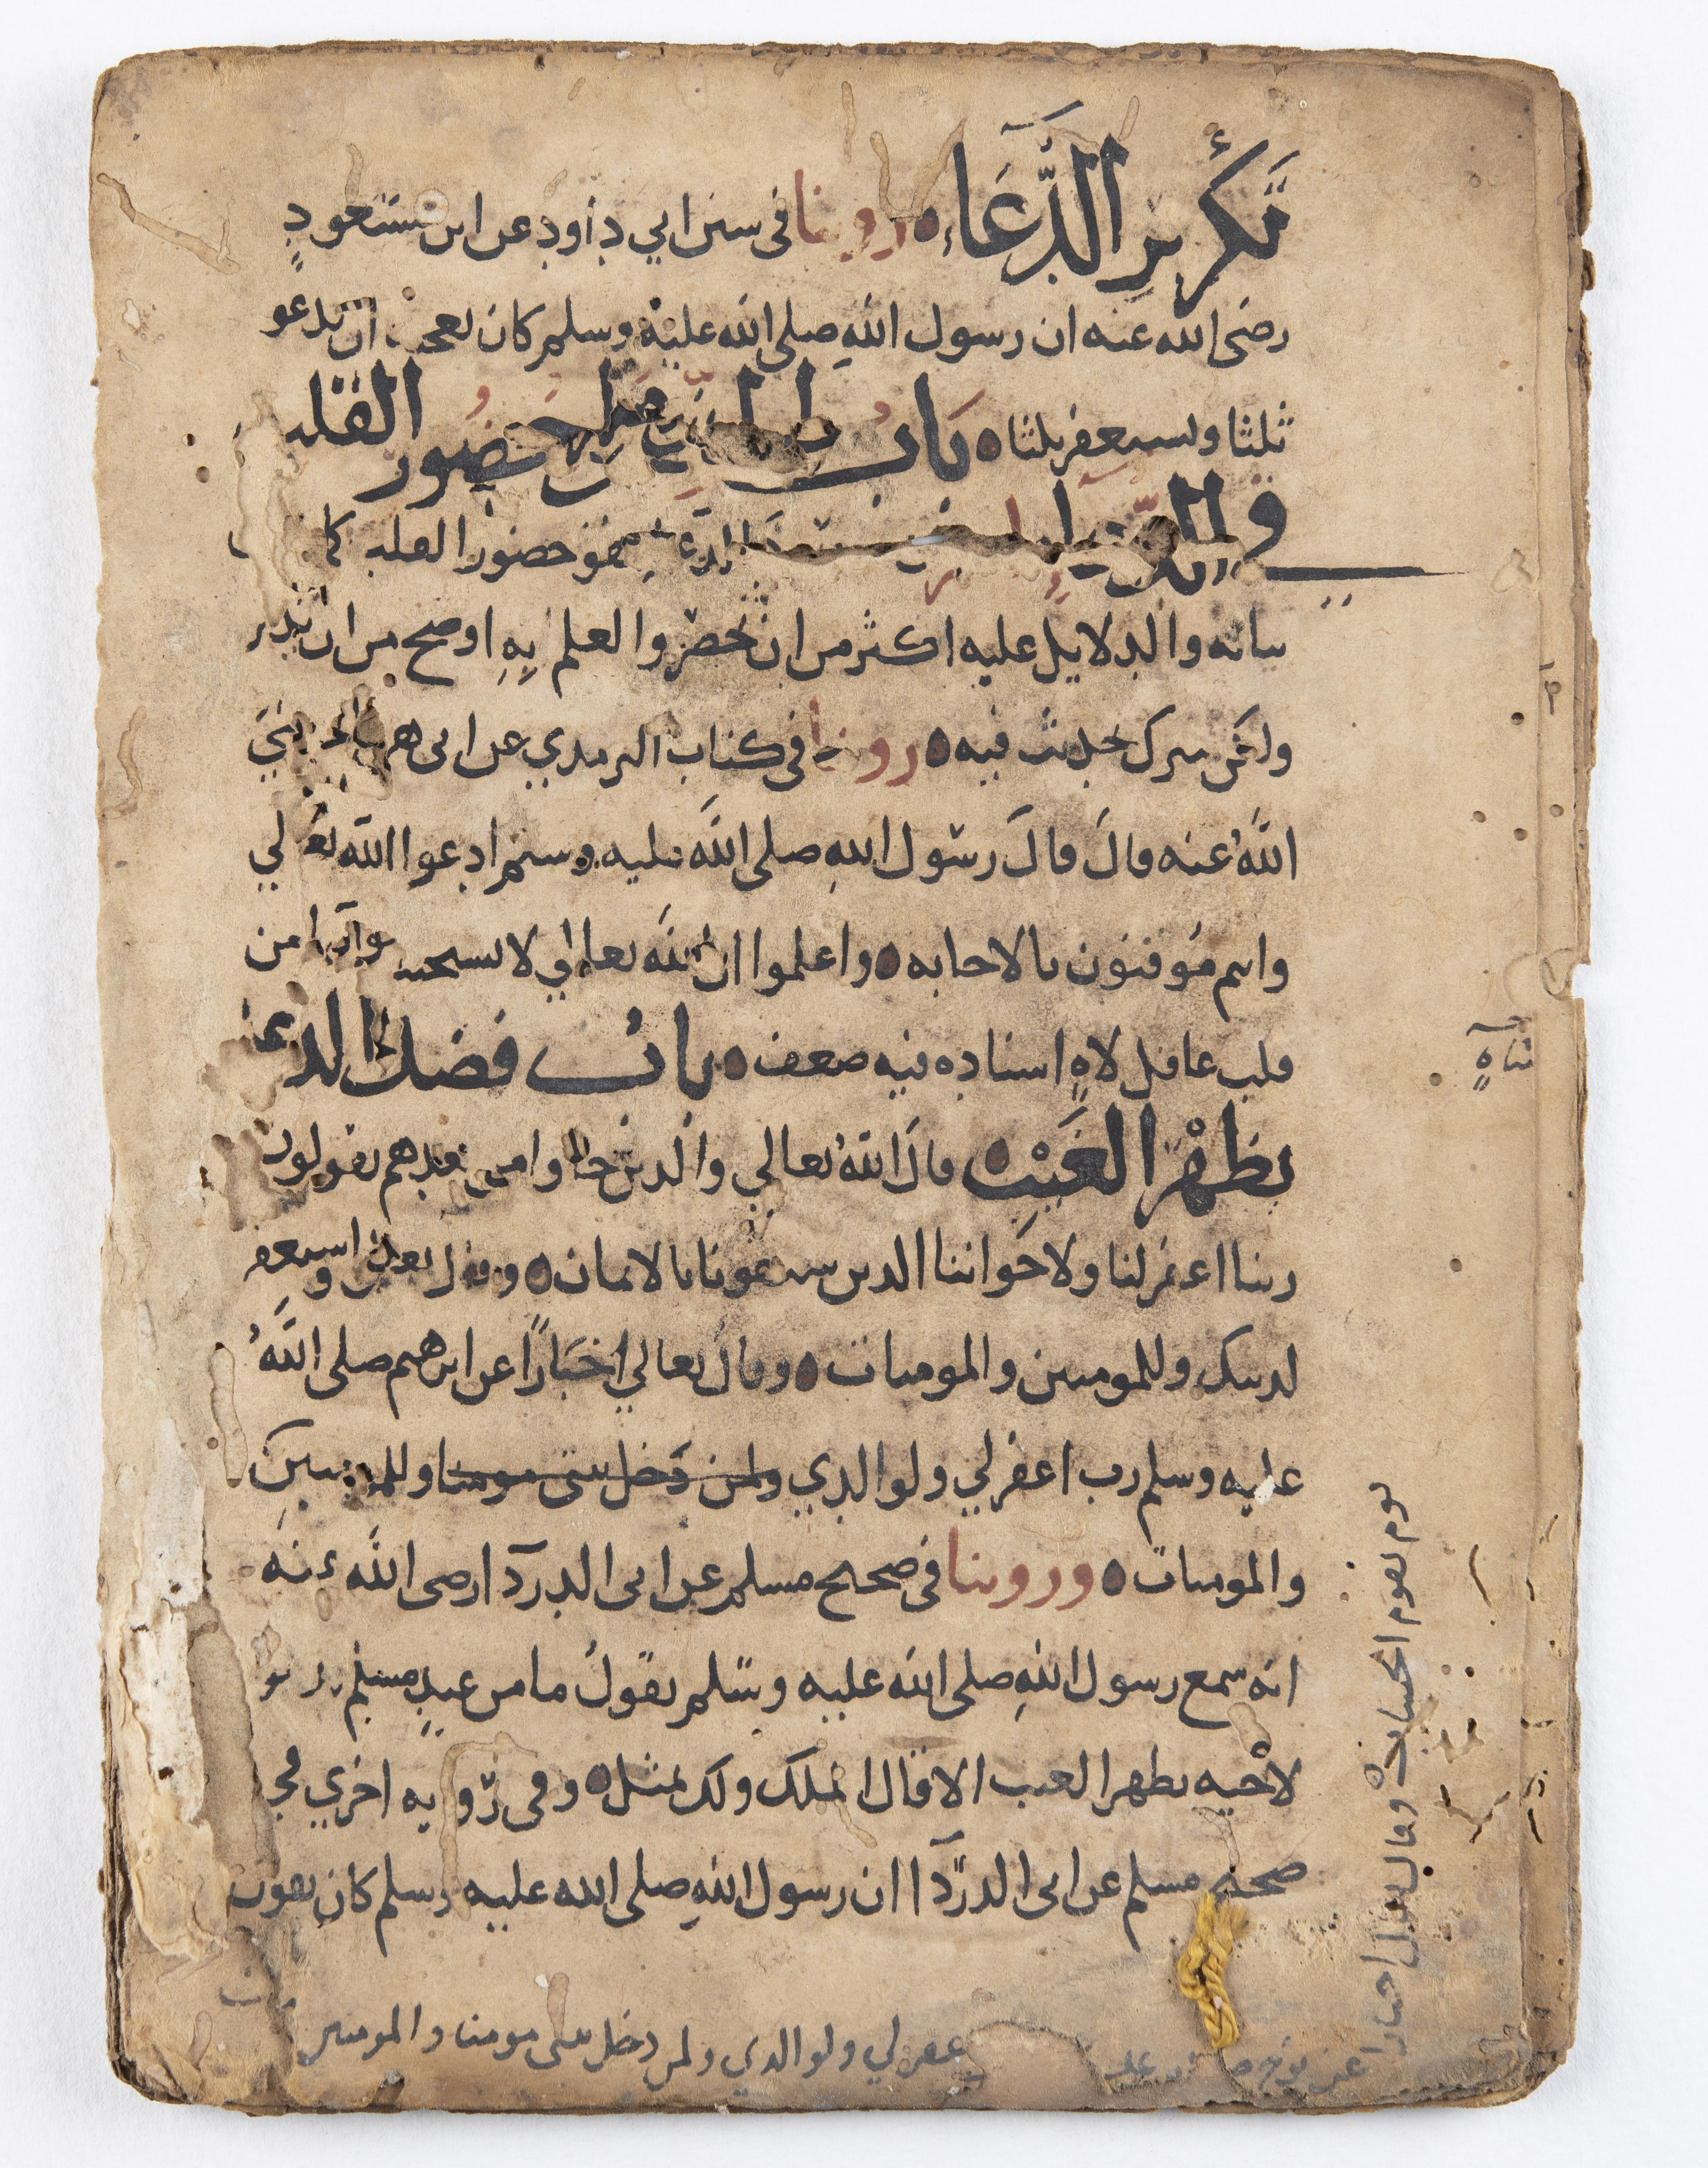 تكرير الدعاء ه روينا فى سنن ابي داود عن ابن مسعود
رضى الله عنه ان رسول الله صلى الله عليه وسلم كان يعجبه ان يدعو
ثلثا ويستغفر ثلثا ه باب الحث على حضور القلب
في الدعاء الدعا هو حضور القلب كما
بيانه والدلايل عليه اكثر من ان تحصر والعلم به اوضح من ان تذكر
ولكن نتبرك بحديث فيه ه روينا فى كتاب الترمذي عن ابى هريرة رضي
الله عنه قال قال رسول الله صلى الله عليه وسلم ادعوا الله تعالي
وانتم موقنون بالاجابه ه واعلموا ان الله تعالي لا يستجيب دعآ من
قلب غافل لاهٍ اسناده فيه ضعف ه باب فضل الدعا
بظهر الغيب ه قال الله تعالي والذين جاوا من بعدهم يقولون
ربنا اغفر لنا ولاخواننا الذين سبقونا بالايمان ه وقال تعالى واستغفر
لذنبك وللمومنين والمومنات ه وقال تعالي اخبارًا عن ابرهيم صلى الله
عليه وسلم رب اغفر لي ولوالدي ولمن دخل بيتى مومنا وللمومنين
والمومنات ه وروينا فى صحيح مسلم عن ابى الدردآ رضى الله عنه
انه سمع رسول الله صلى الله عليه وسلم يقول ما من عبدٍ مسلم يدعو
لاخيه بظهر الغيب الا قال الملك ولك بمثل ه وفى روايه اخري في
صحيح مسلم عن ابى الدردآ ان رسول الله صلى الله عليه وسلم كان يقول
يوم يقوم الحساب وقال تعالى اخبارا
عن نوح
اغفر لي ولوالدي ولمن دخل بيتى مومنا وللمومنين